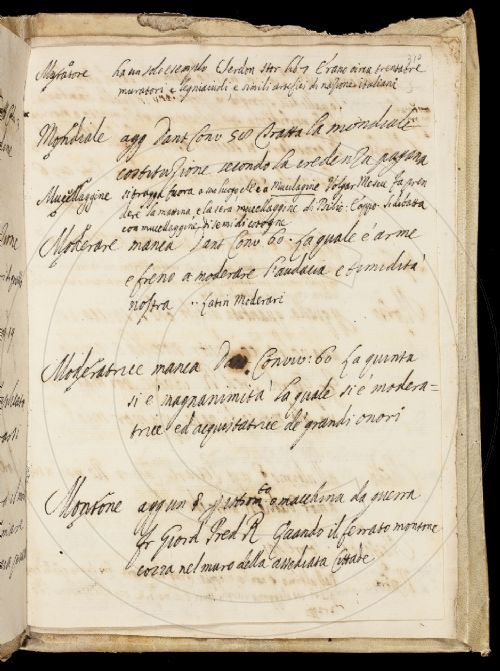 Muratore ha un solo esempio Serdon Stor lib 7 Erano circa trentatre
muratori e legniaiuoli, e simili artefici di nazione italiani
Mondiale agg Dant Conv 58 Tratta la mondiale
costituzione secondo la credenza pagana
Mucellaggine si traga fuora a
e la sera mucellaggine di Psilio
con mucellaggine di semi di cotogne
Moderare manca Dant Conv. 60. la quale è arme
e freno a moderare l'audacia e timidità
nostra .. Latin Moderari
Moderatrice manca Conviv: 60 La quinta
si è magnanimità la quale si è modera-
trice ed acquistatrice de' grandi onori
Montone agg un macchina da guerra
fr Giord Pred R Quando il ferrato montone
cozza nel muro della assediata Cittade